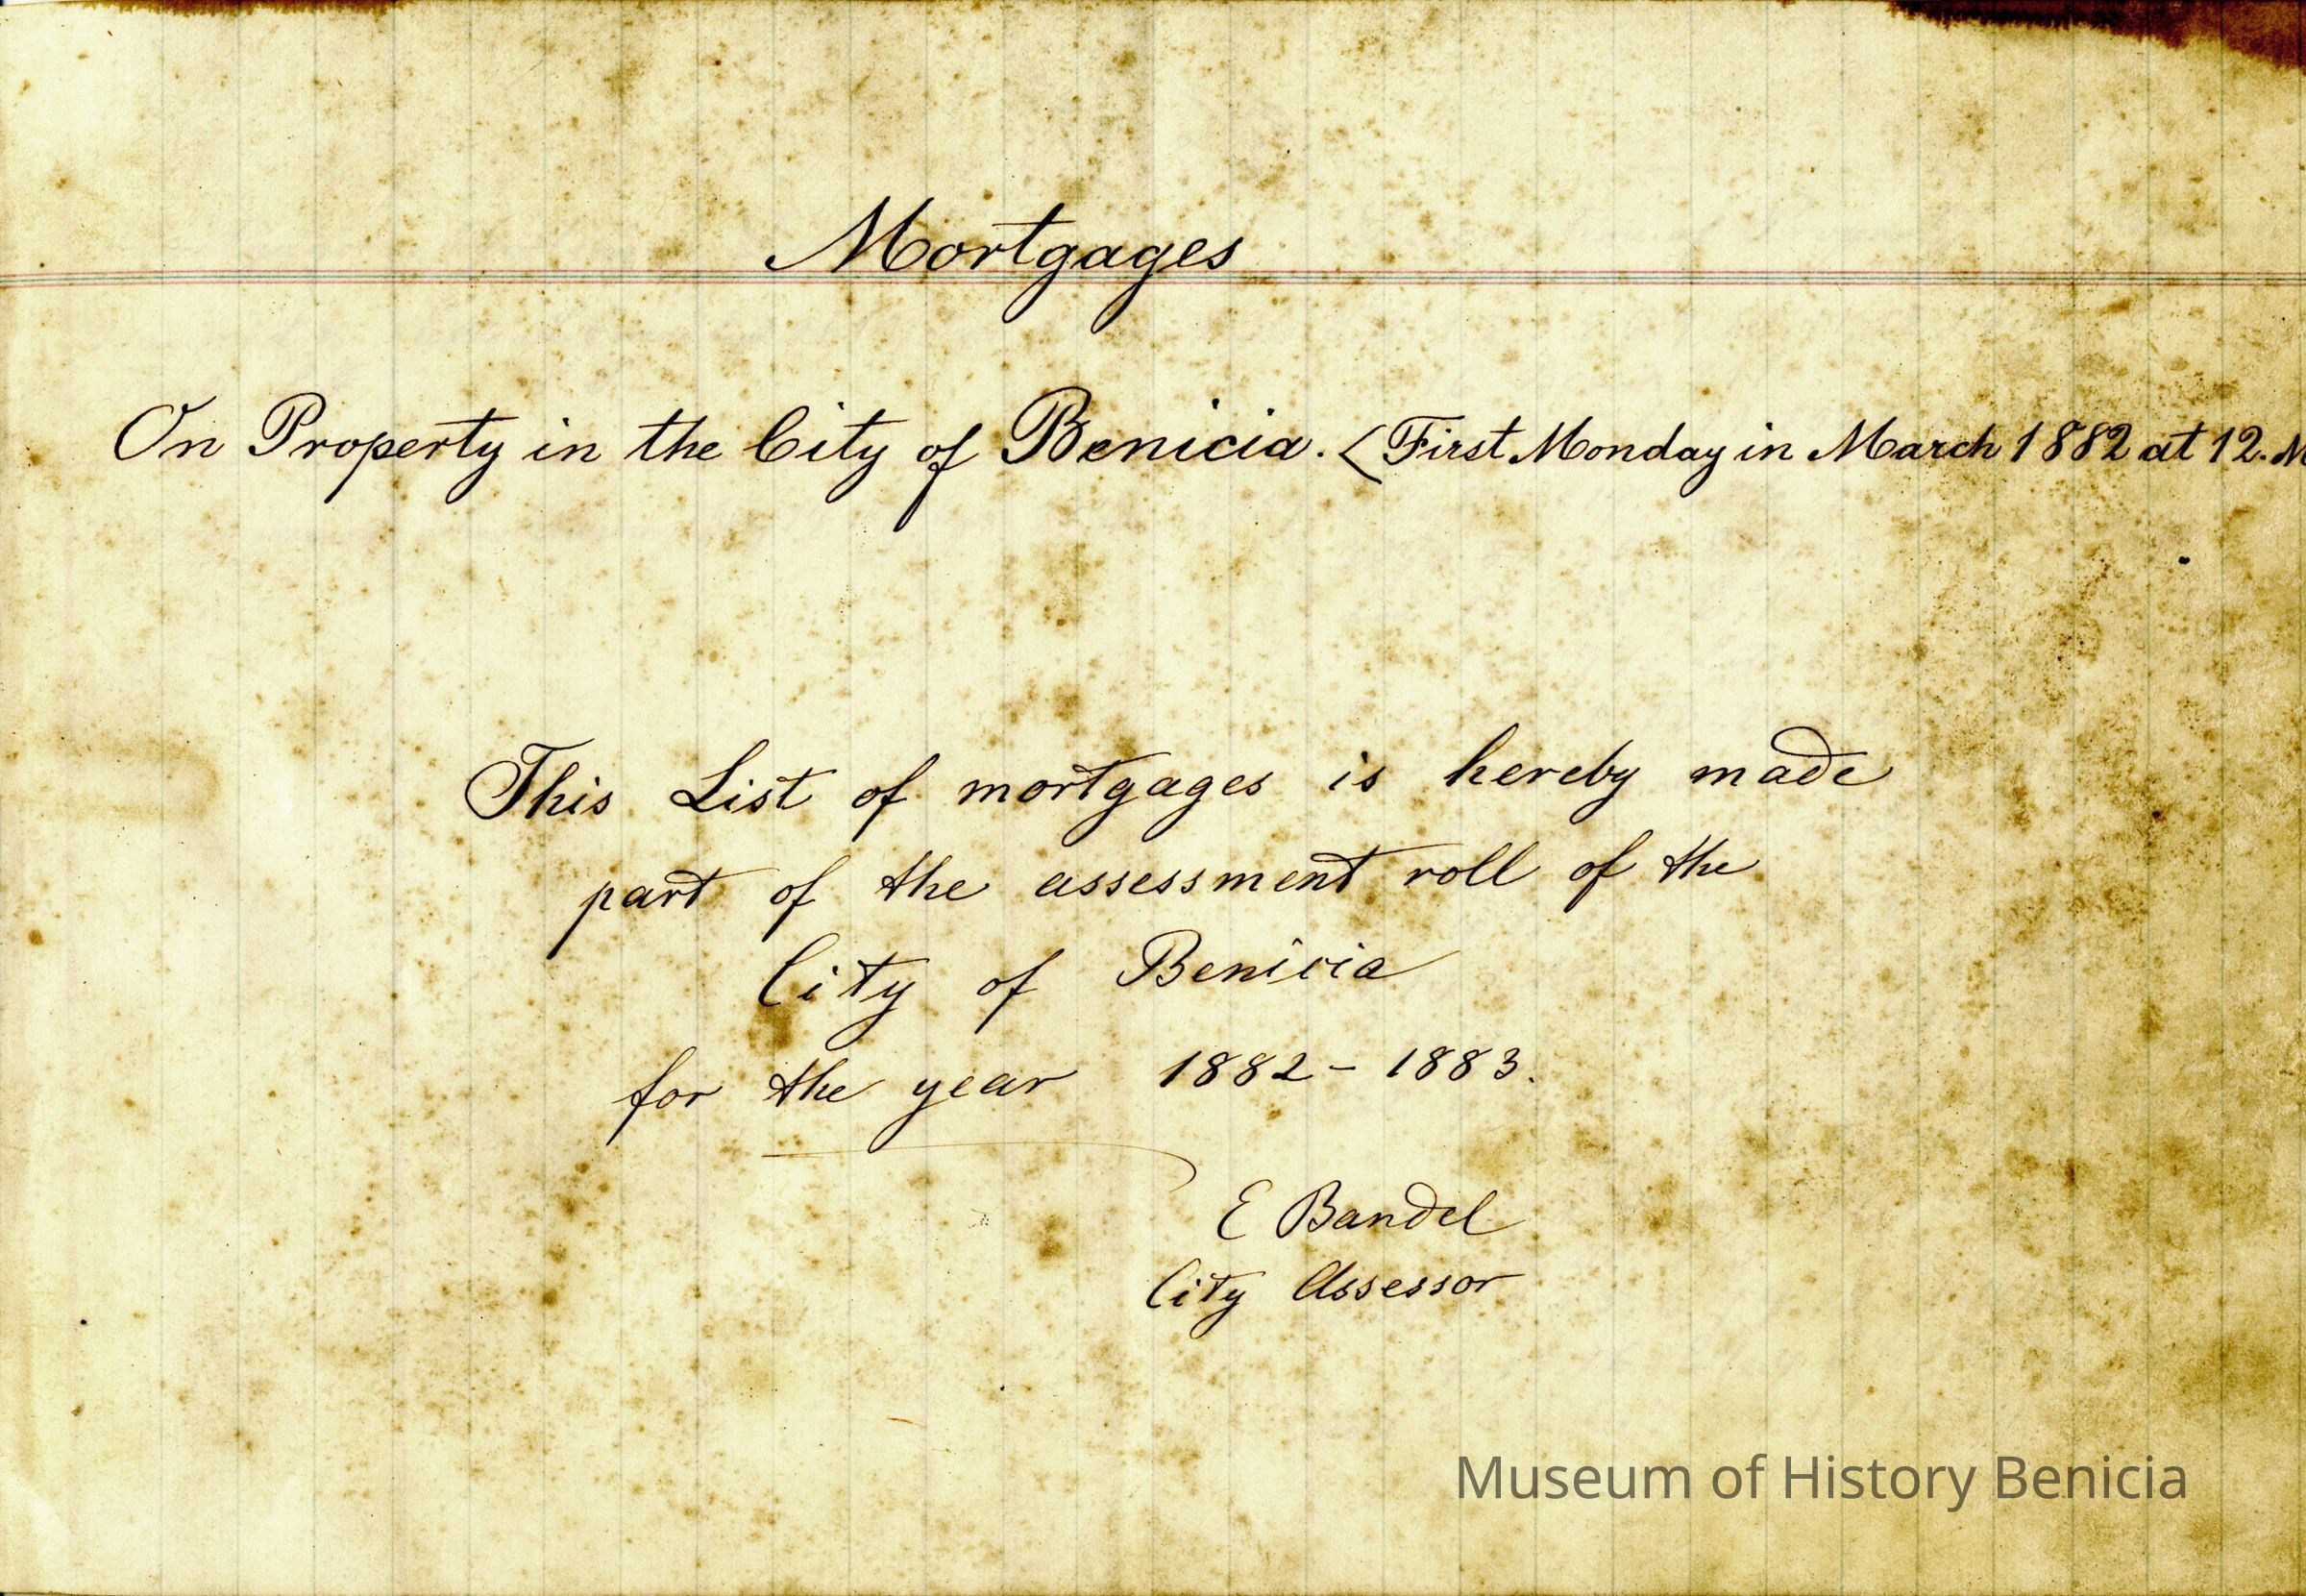 Mortgages
On Property in the City of Benicia. (First Monday in March 1882 at 12. M
This List of mortgages is hereby made
part of the assessment roll of the
City of Benicia
for the year 1882 - 1883.
E Bandel
City Assessor
Museum of History Benicia